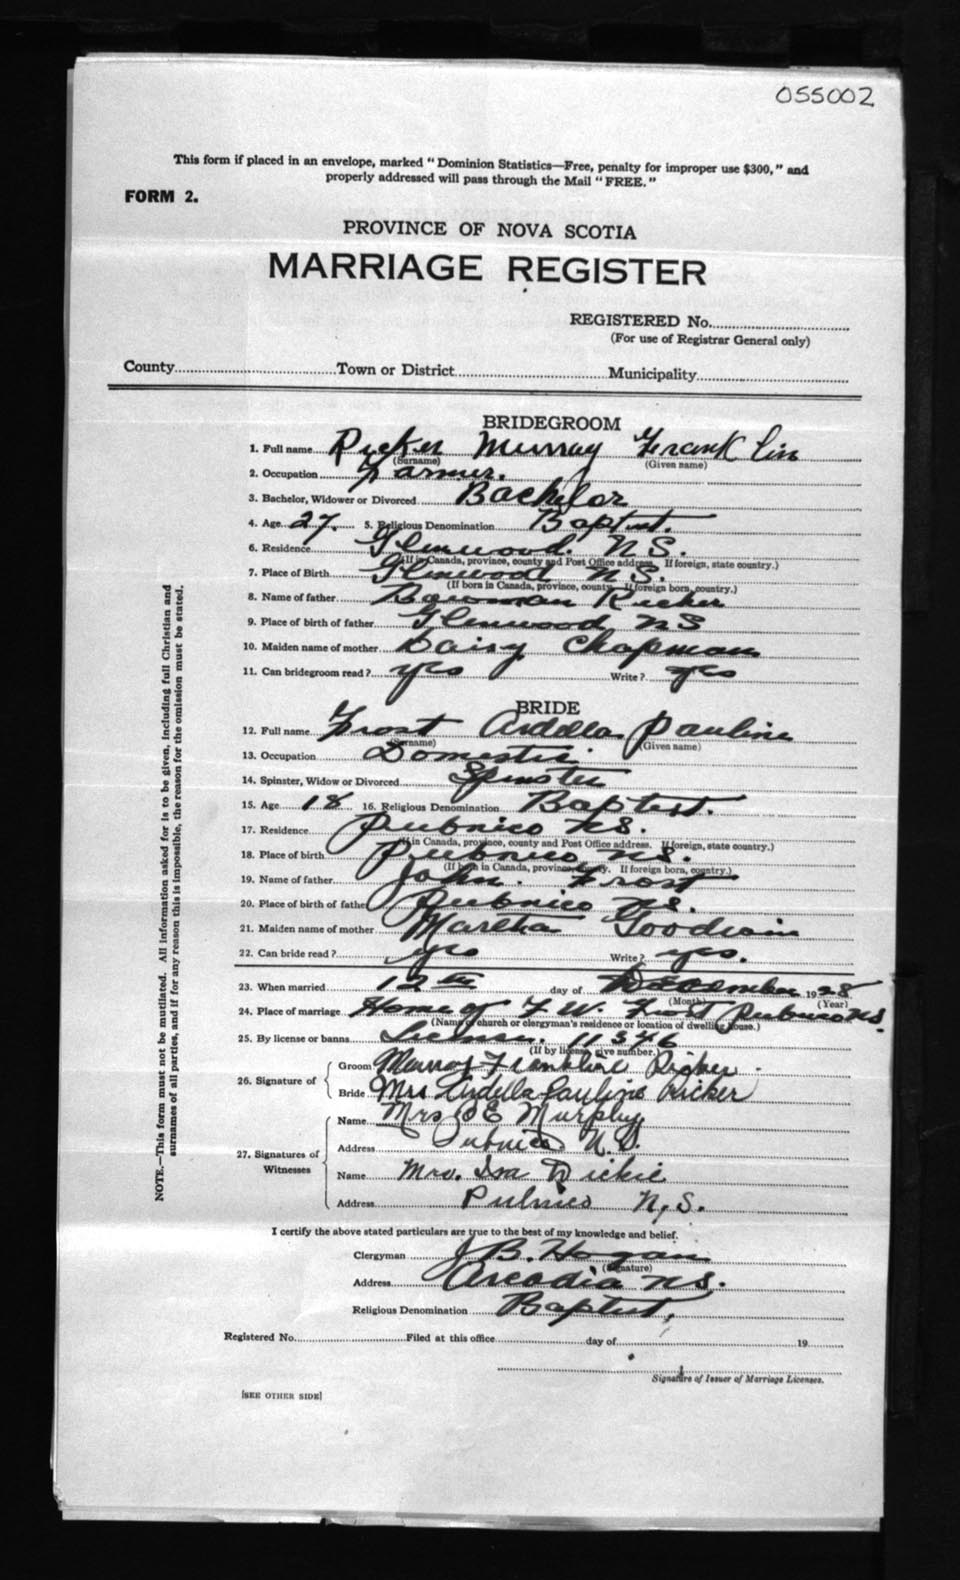 055002
This form if placed in an envelope, marked "Dominion Statistics—Free, penalty for improper use $300," and
properly addressed will pass through the Mail "FREE."
FORM 2.
PROVINCE OF NOVA SCOTIA
MARRIAGE REGISTER
REGISTERED No.
(For use of Registrar General only)
County Town or District Municipality
BRIDEGROOM
1. Full name Ricker Murray Franklin
(Surname) (Given name)
2. Occupation Farmer.
3. Bachelor, Widower or Divorced Bachelor
4. Age 27. 5. Religious Denomination Baptist.
6. Residence Glenwood. N.S.
(If in Canada, province, county and Post Office address. If foreign, state country.)
7. Place of Birth Glenwood N.S.
(If born in Canada, province, county. If foreign born, country.)
8. Name of father Bowman Ricker
9. Place of birth of father Glenwood NS
10. Maiden name of mother Daisy Chapman
11. Can bridegroom read? yes Write? yes
BRIDE
12. Full name Frost Ardella Pauline
(Surname) (Given name)
13. Occupation Domestic
14. Spinster, Widow or Divorced Spinster
15. Age 18 16. Religious Denomination Baptist.
17. Residence Pubnico NS.
(If in Canada, province, county and Post Office address. If foreign, state country.)
18. Place of birth Pubnico NS.
(If born in Canada, province, county. If foreign born, country.)
19. Name of father John. Frost
20. Place of birth of father Pubnico NS.
21. Maiden name of mother Martha Goodwin
22. Can bride read? yes Write? yes.
23. When married 12th day of December 1928
(Month) (Year)
24. Place of marriage Home of F. W. Frost Pubnico NS.
(Name of church or clergyman's residence or location of dwelling house.)
25. By license or banns License. 11346
(If by license, give number.)
26. Signature of
Groom Murray Frankline Ricker.
Bride Mrs Ardella Pauline Ricker
27. Signatures of Witnesses
Name Mrs E Murphy
Address Pubnico N.S.
Name Mrs. Ira Dickie
Address Pubnico N.S.
I certify the above stated particulars are true to the best of my knowledge and belief.
Clergyman J B. Hogan
(Signature)
Address Arcadia NS.
Religious Denomination Baptist.
Registered No. Filed at this office day of 19
Signature of Issuer of Marriage Licenses.
[SEE OTHER SIDE]
NOTE.—This form must not be mutilated. All information asked for is to be given, including full Christian and
surnames of all parties, and if for any reason this is impossible, the reason for the omission must be stated.